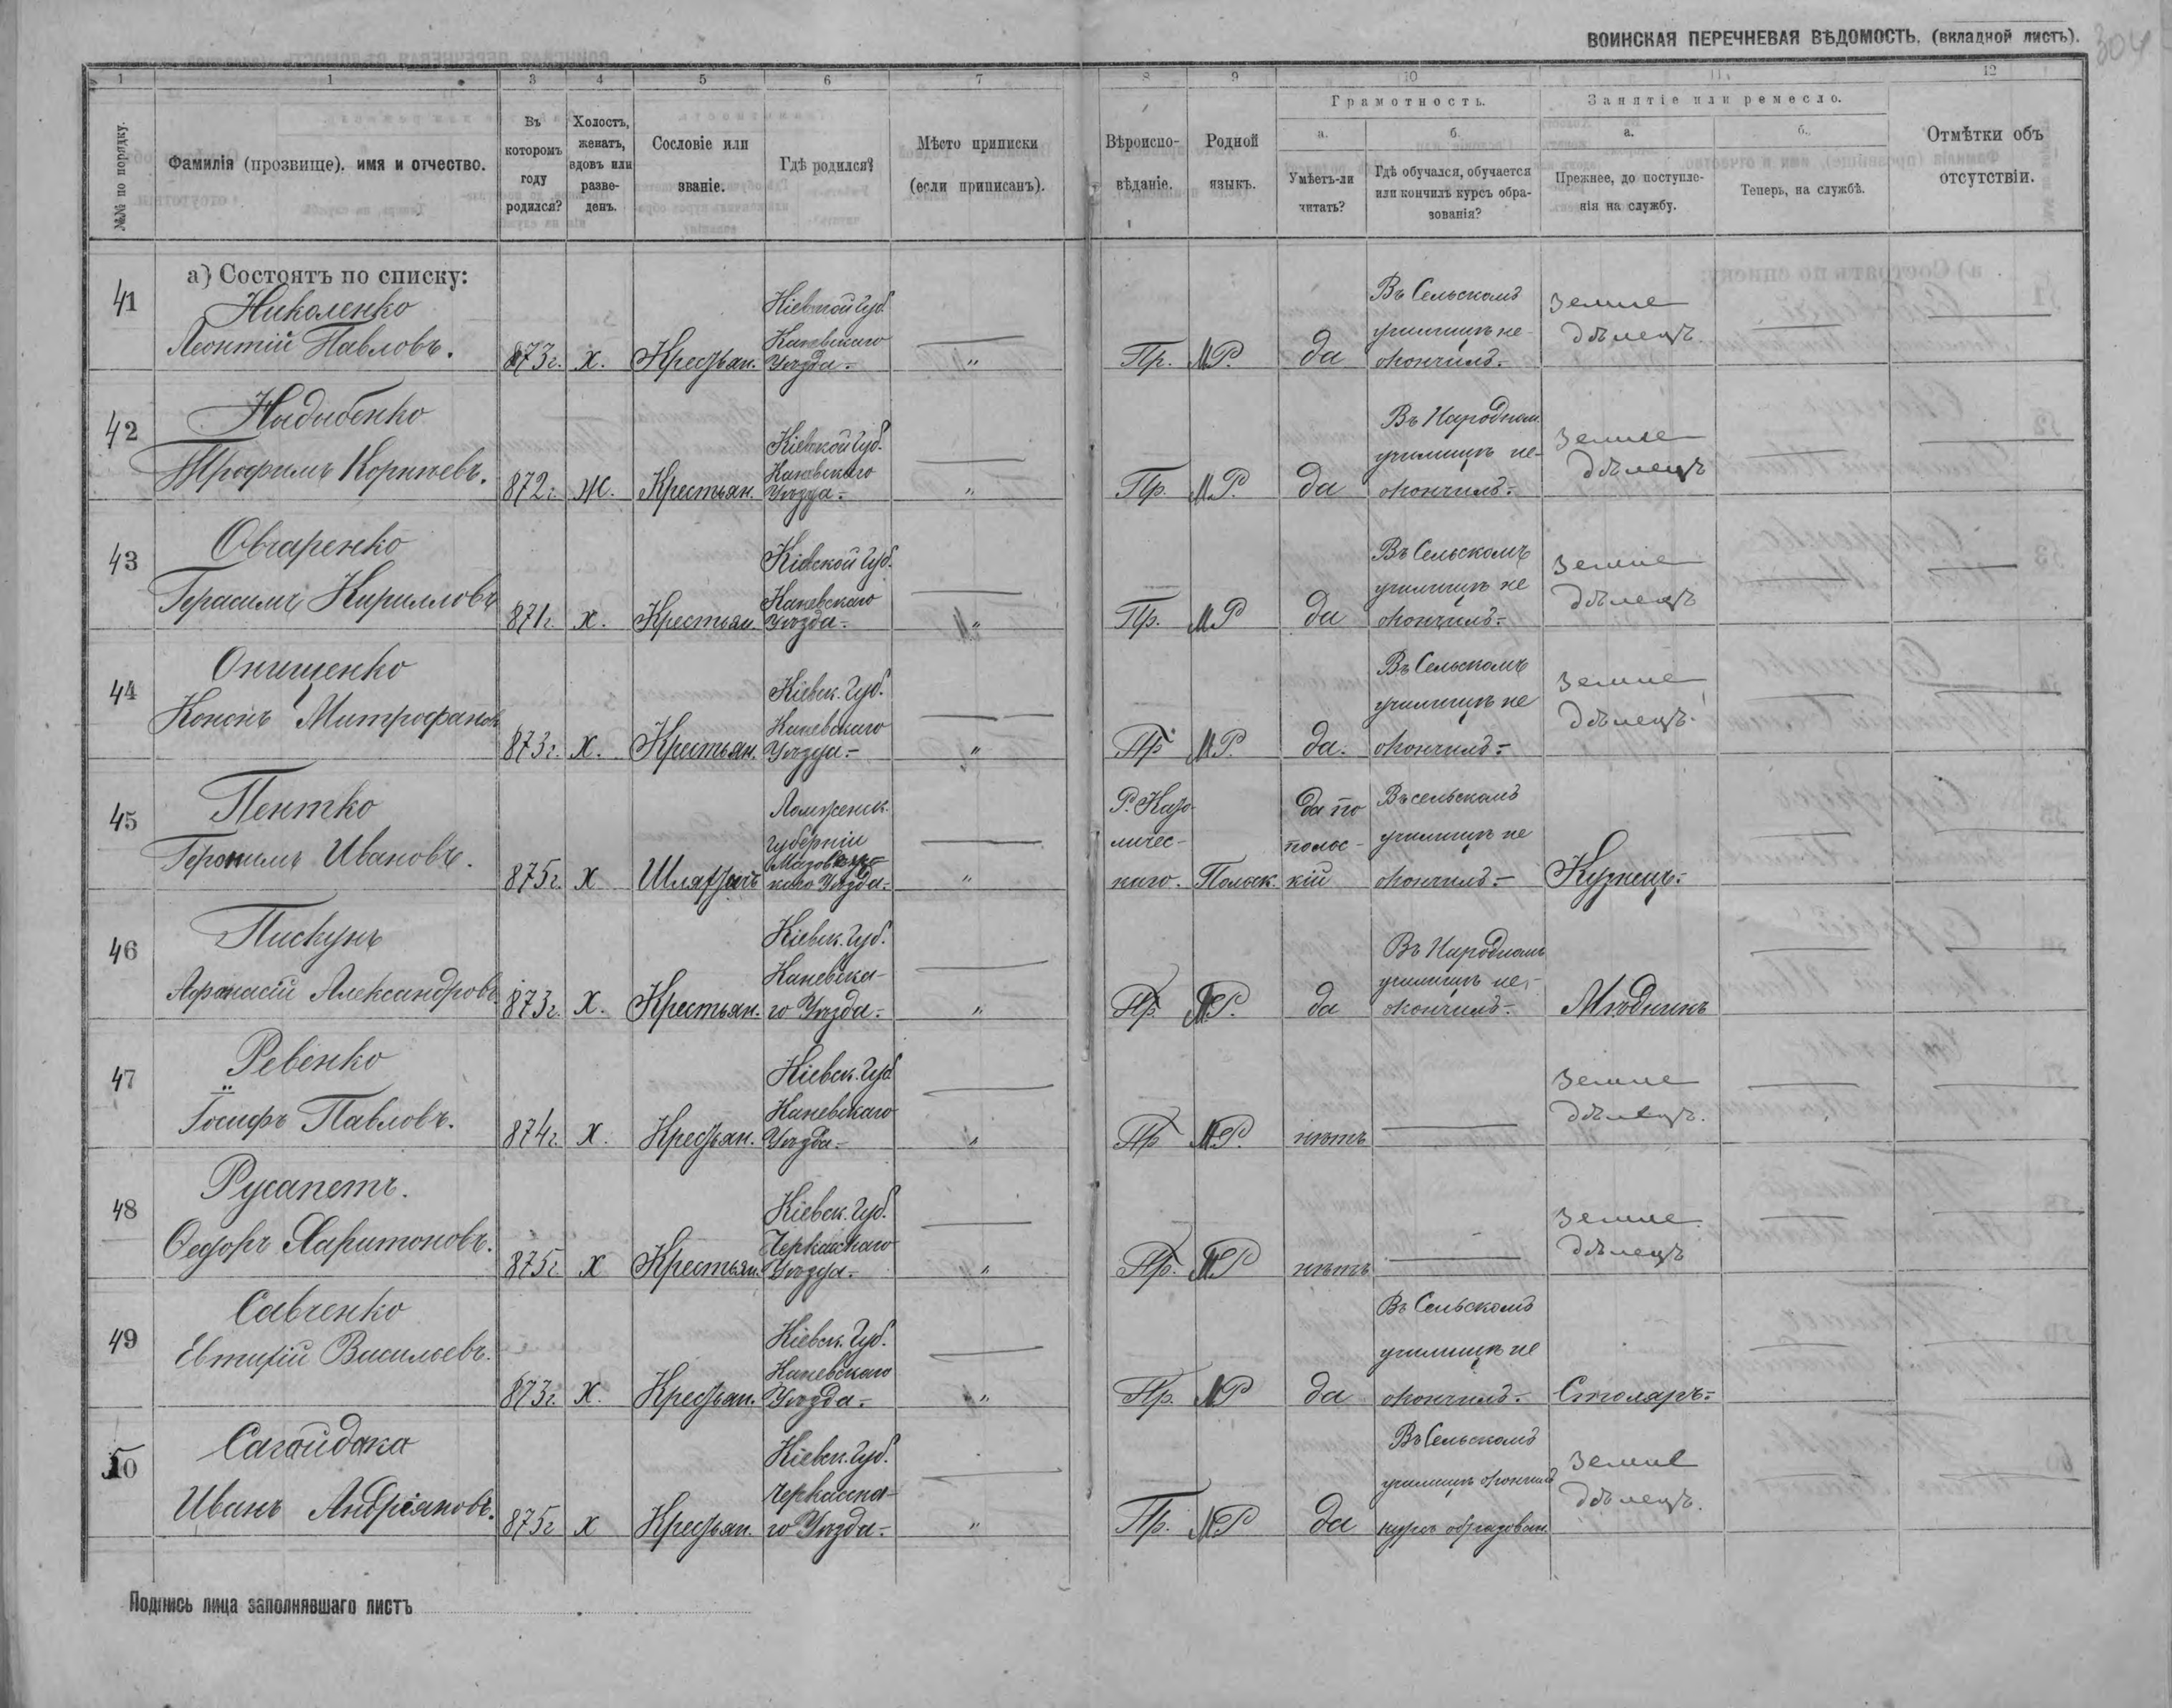 ВОИНСКАЯ ПЕРЕЧНЕВАЯ ВѢДОМОСТЬ. (вкладной листъ).
304
1 1 3 4 5 6 7 8 9 10 11 12
№№ по порядку.
Фамилія (прозвище), имя и отчество.
Въ которомъ году родился?
Холостъ, женатъ, вдовъ или разведенъ.
Сословіе или званіе.
Гдѣ родился?
Мѣсто приписки (если приписанъ).
Вѣроиспо-
вѣданіе.
Родной языкъ.
Грамотность.
а.
Умѣетъ-ли читать?
б.
Гдѣ обучался, обучается или кончилъ курсъ обра-
зованія?
Занятіе или ремесло.
а.
Прежнее, до поступле-
нія на службу.
б.
Теперь, на службѣ.
Отмѣтки объ отсутствіи.
а) Состоятъ по списку:
41 Николенко
Леонтій Павловъ. 873г. х. Крестьян. Кіевской Губ. Каневскаго Уѣзда. „ Пр. МР. да Въ Сельскомъ училищѣ не окончилъ. Земле дѣлецъ.
42 Надибенко
Трофимъ Корнѣевъ. 872г. Ж. Крестьян. Кіевской Губ. Каневскаго Уѣзда. „ Пр. МР. да Въ Народном училищѣ не окончилъ. Земле дѣлецъ
43 Овчаренко
Герасимъ Кирилловъ 871г. х. Крестьян. Кіевской Губ. Каневскаго Уѣзда. „ Пр. МР да Въ Сельскомъ училищѣ не окончилъ. Земле дѣлецъ
44 Онищенко
Кононъ Митрофановъ 873г. Х. Крестьян. Кіевск. Губ. Каневскаго Уѣзда. „ Пр МР. да. Въ Сельскомъ училищѣ не окончилъ. Земле дѣлецъ.
45 Пентко
Геронимъ Ивановъ. 875г. Х Ломженск. Губерніи Уѣзда. „ Р. Като-
личес-
каго. Польск. да по польс-
кій Въ сельскомъ училищѣ не окончилъ. Кузнецъ.
46 Пискунъ
Афанасій Александровъ 873г. Х. Крестьян. Кіевск. Губ. Каневска-
го Уѣзда. „ Пр. МР. да Въ Народномъ училищѣ не окончилъ. Мѣдникъ
47 Ревенко
Іосифъ Павловъ. 874г. Х. Крестьян. Кіевск. Губ Каневскаго Уѣзда. „ Пр МР. нѣтъ Земле дѣлецъ.
48 Русапетъ.
Ѳедоръ Харитоновъ. 875г. Х Крестьян. Кіевск. Губ. Черкаскаго Уѣзда. „ Пр. МР нѣтъ Земле дѣлецъ
49 Савченко
Евтихій Васильевъ. 873г. Х. Крестьян. Кіевск. Губ. Каневскаго Уѣзда. „ Пр. МР да Въ Сельскомъ училищѣ не окончилъ. Столяръ.
50 Сагайдака
Иванъ Андріяновъ. 875г Х Крестьян. Кіевск. Губ. Черкасска-
го Уѣзда. „ Пр. МР да Въ Сельскомъ училищѣ окончилъ курсъ образован. Земле дѣлецъ.
Подпись лица заполнявшаго листъ